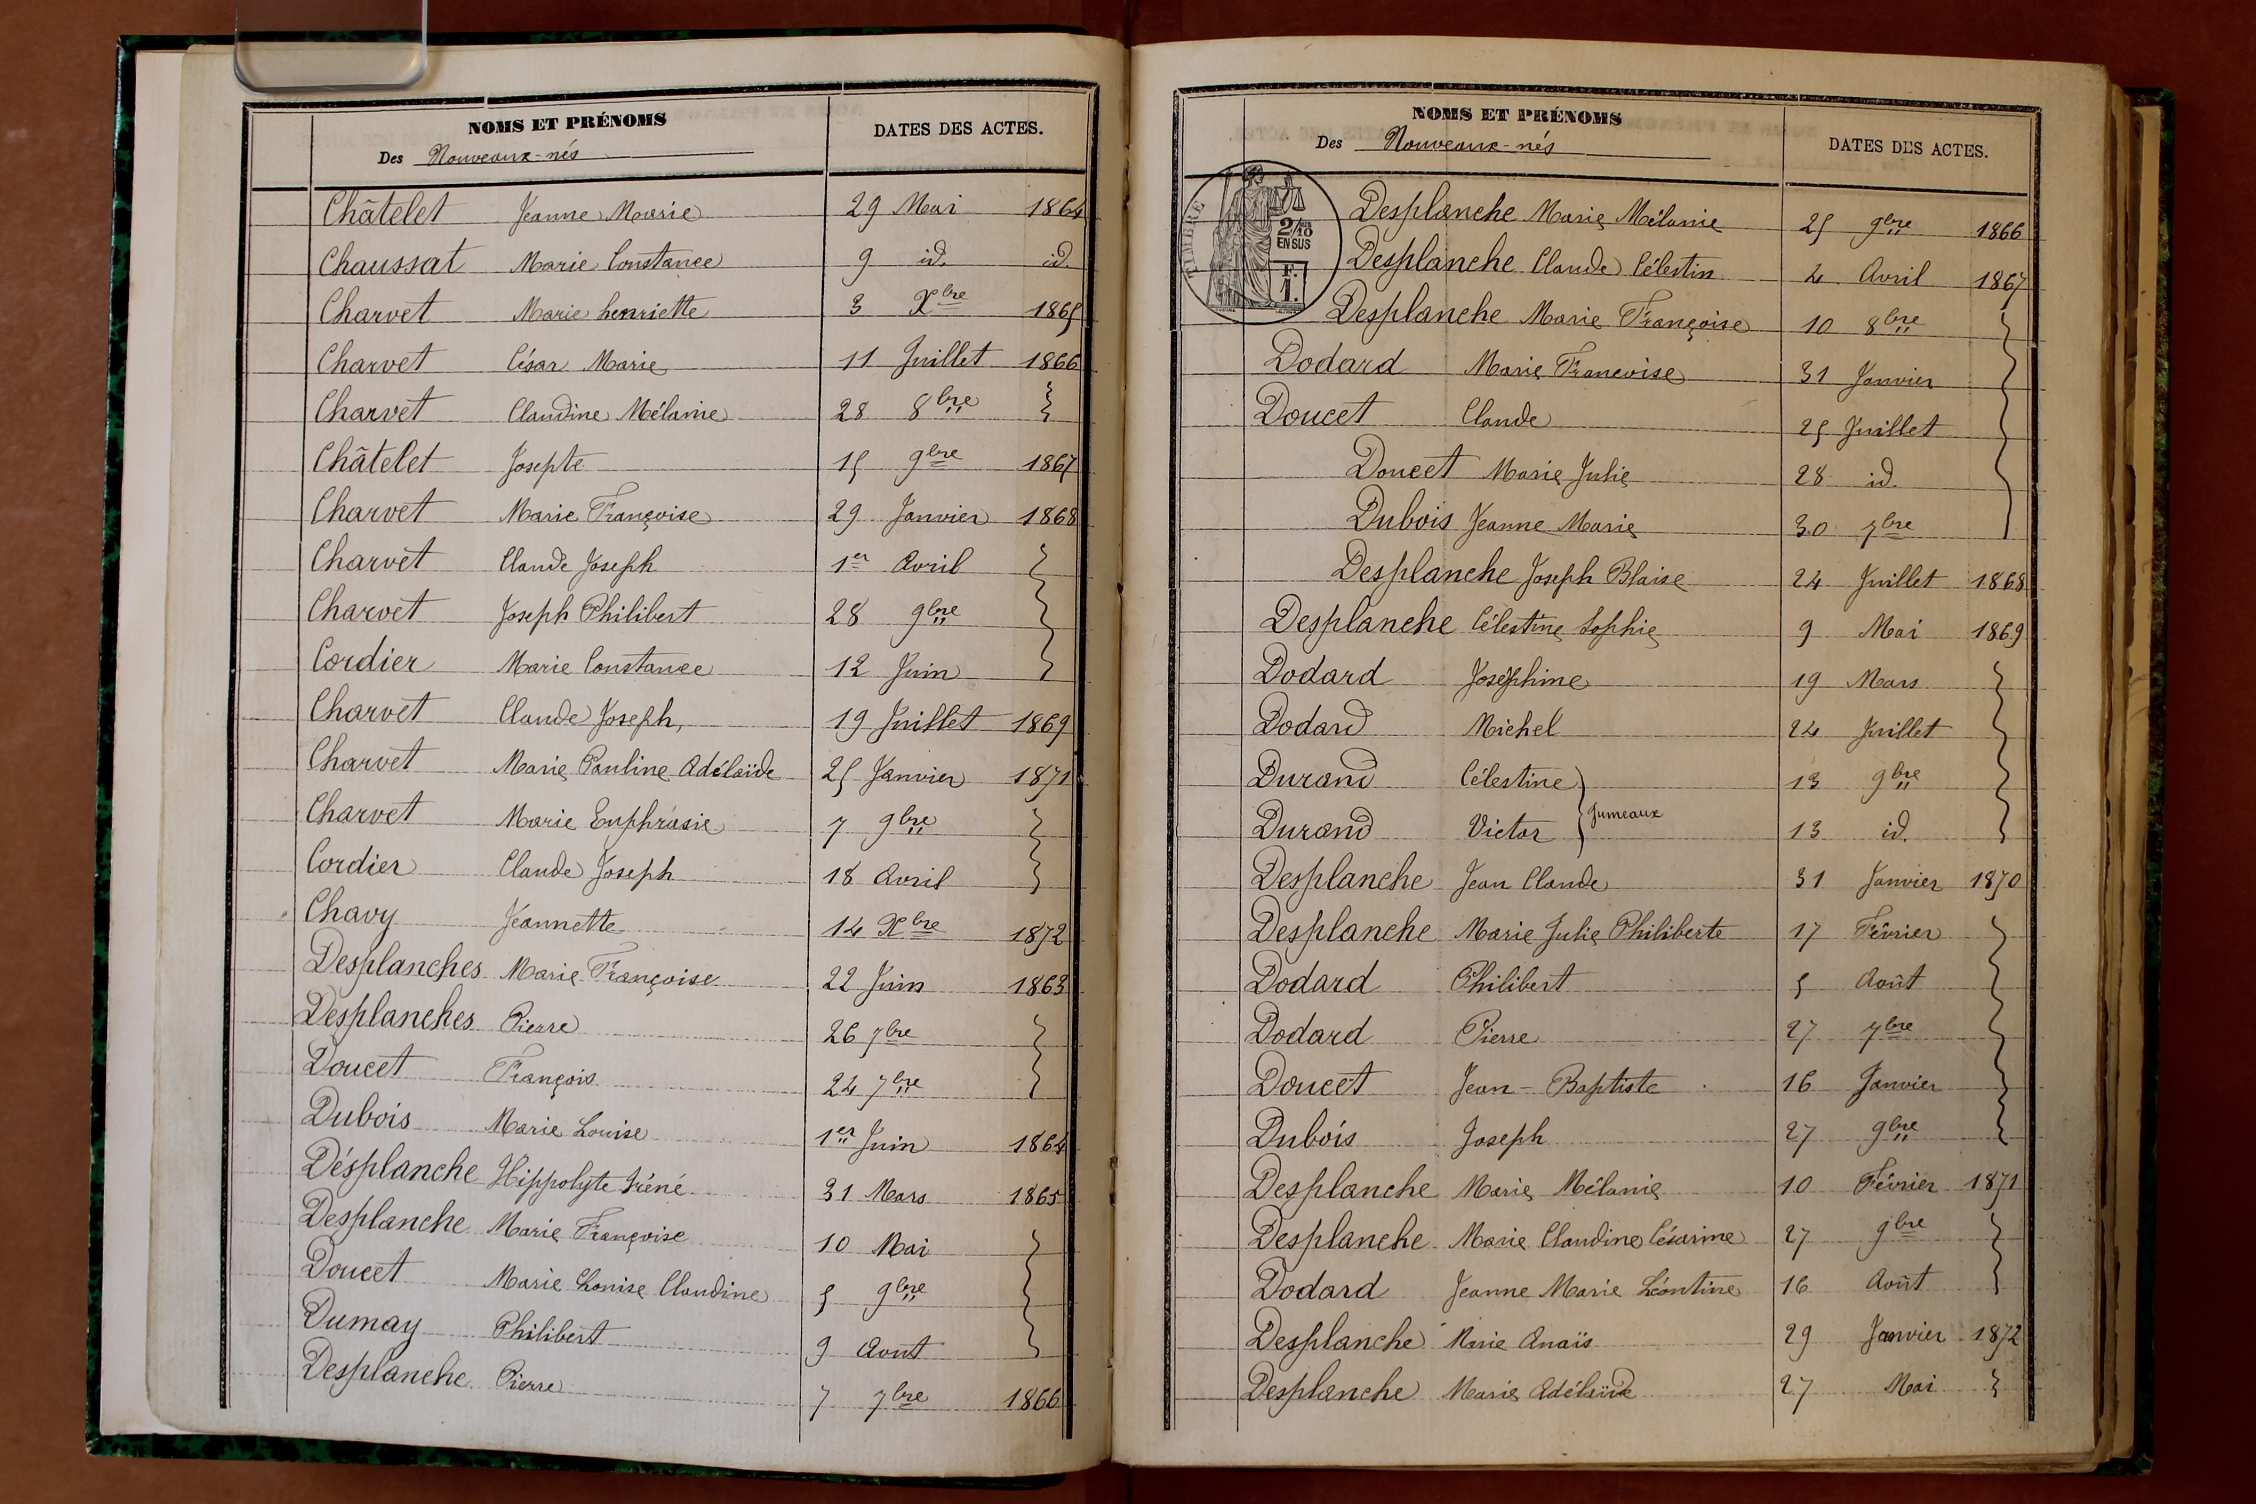 NOMS ET PRÉNOMS
DATES DES ACTES.
Des Nouveaux-nés
Châtelet Jeanne Marie 29 Mai 1864
Chaussat Marie Constance 9 id. id.
Charvet Marie henriette 3 Xbre 1865
Charvet César Marie 11 Juillet 1866
Charvet Claudine Mélanie 28 8bre
Châtelet Josepte 15 9bre 1867
Charvet Marie Françoise 29 Janvier 1868
Charvet Claude Joseph 1er Avril
Charvet Joseph Philibert 28 9bre
Cordier Marie Constance 12 Juin
Charvet Claude Joseph, 19 Juillet 1869
Charvet Marie Pauline Adélaïde 25 Janvier 1871
Charvet Marie Euphrasie 7 9bre
Cordier Claude Joseph 18 Avril
Chavy Jeannette 14 Xbre 1872
Desplanches Marie Françoise 22 Juin 1863
Desplanches Pierre 26 7bre
Doucet François 24 7bre
Dubois Marie Louise 1er Juin 1864
Désplanche Hippolyte Iréné 31 Mars 1865
Desplanche Marie Françoise 10 Mai
Doucet Marie Louise Claudine 5 9bre
Dumay Philibert 9 Aout
Desplanche Pierre 7 7bre 1866
NOMS ET PRÉNOMS
DATES DES ACTES.
Des Nouveaux-nés
TIMBRE
2/10
EN SUS
F.
1.
Desplanche Marie Mélanie 25 9bre 1866
Desplanche Claude Célestin 4 Avril 1867
Desplanche Marie Françoise 10 8bre
Dodard Marie Francoise 31 Janvier
Doucet Claude 25 Juillet
Doucet Marie Julie 28 id.
Dubois Jeanne Marie 30 7bre
Desplanche Joseph Blaise 24 Juillet 1868
Desplanche Célestine Sophie 9 Mai 1869
Dodard Joséphine 19 Mars
Dodard Michel 24 Juillet
Durand Célestine 13 9bre
Jumeaux
Durand Victor 13 id.
Desplanche Jean Claude 31 Janvier 1870
Desplanche Marie Julie Philiberte 17 Février
Dodard Philibert 5 Août
Dodard Pierre 27 7bre
Doucet Jean-Baptiste 16 Janvier
Dubois Joseph 27 9bre
Desplanche Marie Mélanie 10 Février 1871
Desplanche Marie Claudine Césarine 27 9bre
Dodard Jeanne Marie Léontine 16 Août
Desplanche Marie Anaïs 29 Janvier 1872
Desplanche Marie Adélaïde 27 Mai